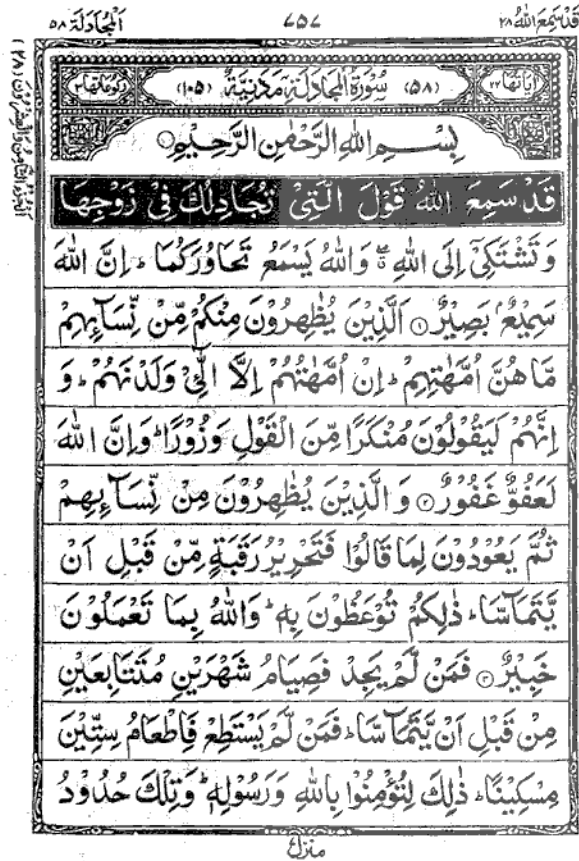 قَدْ سَمِعَ اللّٰهُ ٢٨
٧٥٧
اَلْمُجَادَلَة ٥٨
اٰيَاتُهَا ٢٢
(٥٨) سُوْرَةُ الْمُجَادَلَةِ مَدَنِيَّةٌ (١٠٥)
رُكُوْعَاتُهَا ٣
بِسْــمِ اللّٰهِ الرَّحْمٰنِ الرَّحِيْمِ
قَدْ سَمِعَ اللّٰهُ قَوْلَ الَّتِيْ تُجَادِلُكَ فِيْ زَوْجِهَا
وَتَشْتَكِيْٓ اِلَى اللّٰهِ ۖ وَاللّٰهُ يَسْمَعُ تَحَاوُرَكُمَا ؕ اِنَّ اللّٰهَ
سَمِيْعٌۢ بَصِيْرٌ ۝١ اَلَّذِيْنَ يُظٰهِرُوْنَ مِنْكُمْ مِّنْ نِّسَآئِهِمْ
مَّا هُنَّ اُمَّهٰتِهِمْ ؕ اِنْ اُمَّهٰتُهُمْ اِلَّا الّٰٓئِيْ وَلَدْنَهُمْ ؕ وَ
اِنَّهُمْ لَيَقُوْلُوْنَ مُنْكَرًا مِّنَ الْقَوْلِ وَزُوْرًا ؕ وَاِنَّ اللّٰهَ
لَعَفُوٌّ غَفُوْرٌ ۝٢ وَالَّذِيْنَ يُظٰهِرُوْنَ مِنْ نِّسَآئِهِمْ
ثُمَّ يَعُوْدُوْنَ لِمَا قَالُوْا فَتَحْرِيْرُ رَقَبَةٍ مِّنْ قَبْلِ اَنْ
يَّتَمَآسَّا ؕ ذٰلِكُمْ تُوْعَظُوْنَ بِهٖ ؕ وَاللّٰهُ بِمَا تَعْمَلُوْنَ
خَبِيْرٌ ۝٣ فَمَنْ لَّمْ يَجِدْ فَصِيَامُ شَهْرَيْنِ مُتَتَابِعَيْنِ
مِنْ قَبْلِ اَنْ يَّتَمَآسَّا ؕ فَمَنْ لَّمْ يَسْتَطِعْ فَاِطْعَامُ سِتِّيْنَ
مِسْكِيْنًا ؕ ذٰلِكَ لِتُؤْمِنُوْا بِاللّٰهِ وَرَسُوْلِهٖ ؕ وَتِلْكَ حُدُوْدُ
منزل